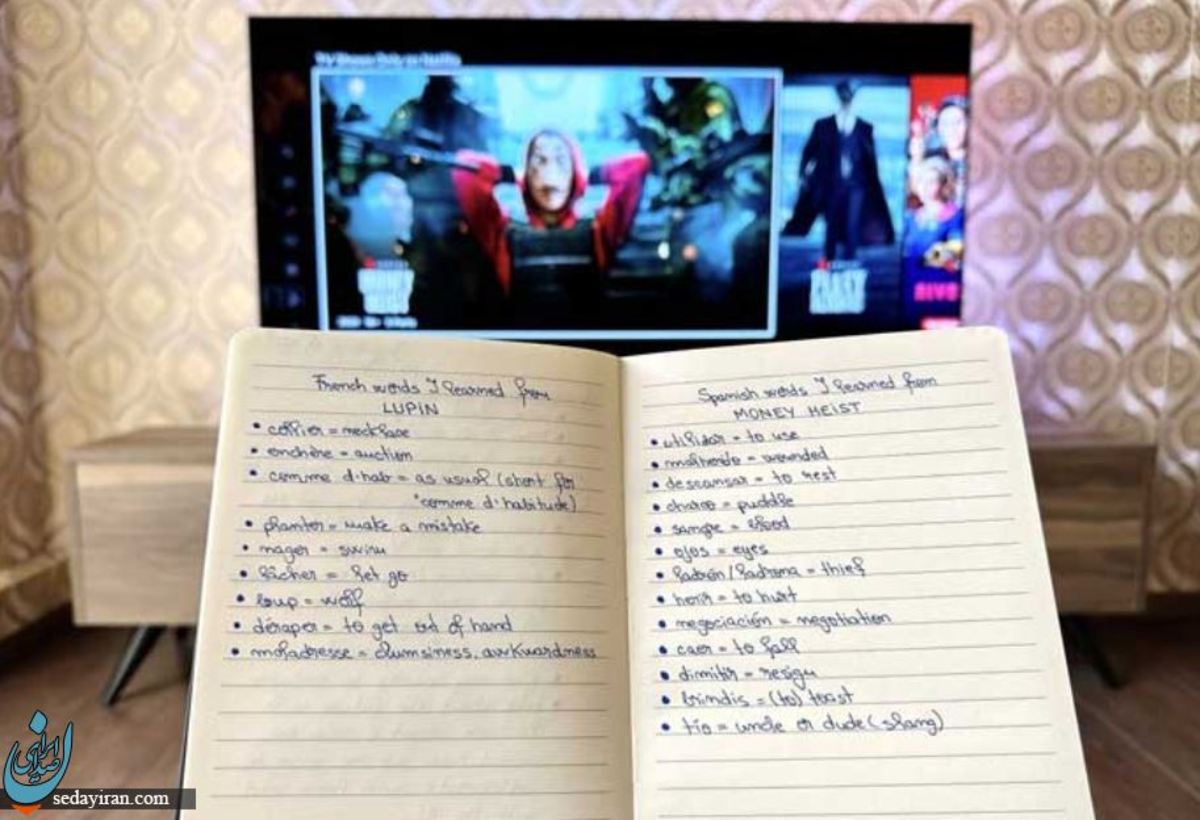 TV Shows Only on Netflix
MONEY HEIST
PEAKY BLINDERS
French words I learned from
LUPIN
• collier = necklace
• enchère = auction
• comme d'hab = as usual (short for
"comme d'habitude)
• planter = make a mistake
• nager = swim
• lâcher = let go
• loup = wolf
• déraper = to get out of hand
• maladresse = clumsiness, awkwardness
Spanish words I learned from
MONEY HEIST
• utilizar = to use
• malherido = wounded
• descansar = to rest
• charco = puddle
• sangre = blood
• ojos = eyes
• ladrón/ladrona = thief
• herir = to hurt
• negociación = negotiation
• caer = to fall
• dimitir = resign
• brindis = (to) toast
• tío = uncle or dude (slang)
صدای ایران
sedayiran.com